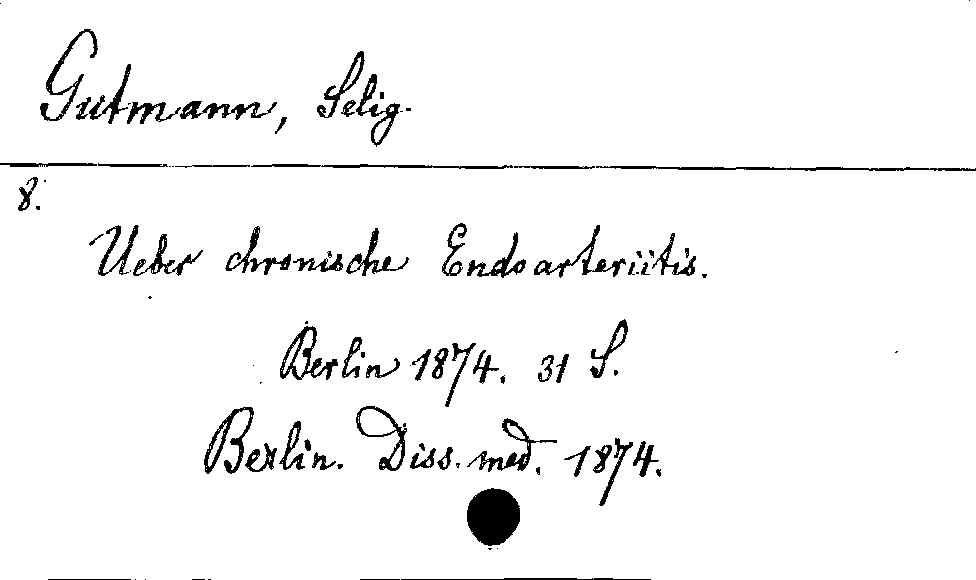 Gutmann, Selig.
8.
Ueber chronische Endoarteriitis.
Berlin 1874. 31 S.
Berlin. Diss. med. 1874.